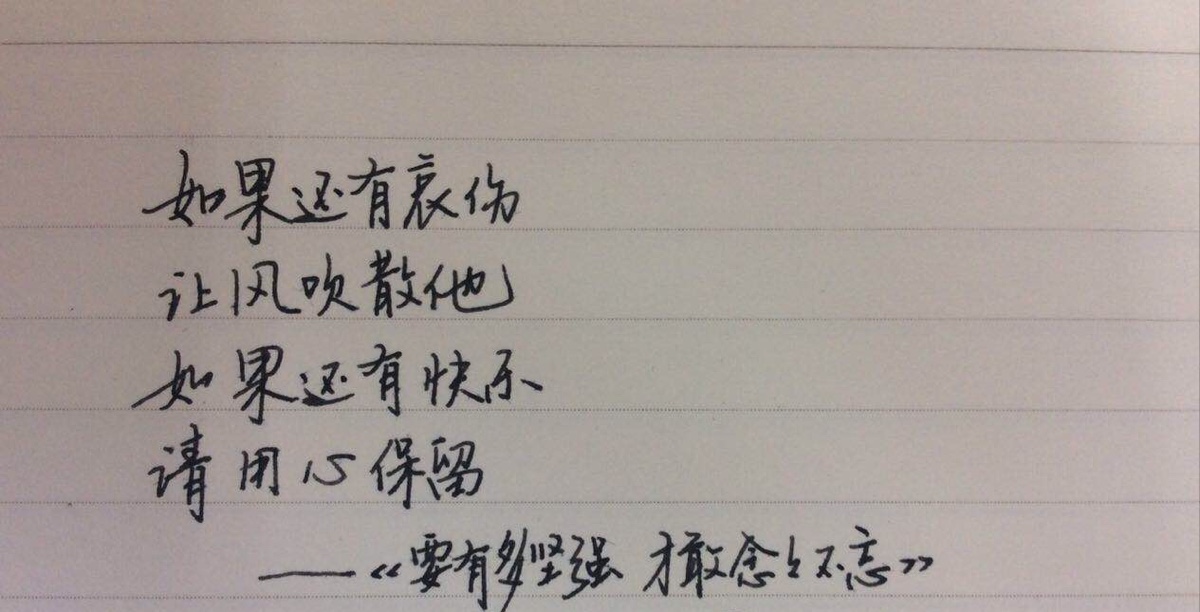 如果还有哀伤
让风吹散他
如果还有快乐
请用心保留
——《要有多坚强 才敢念々不忘》